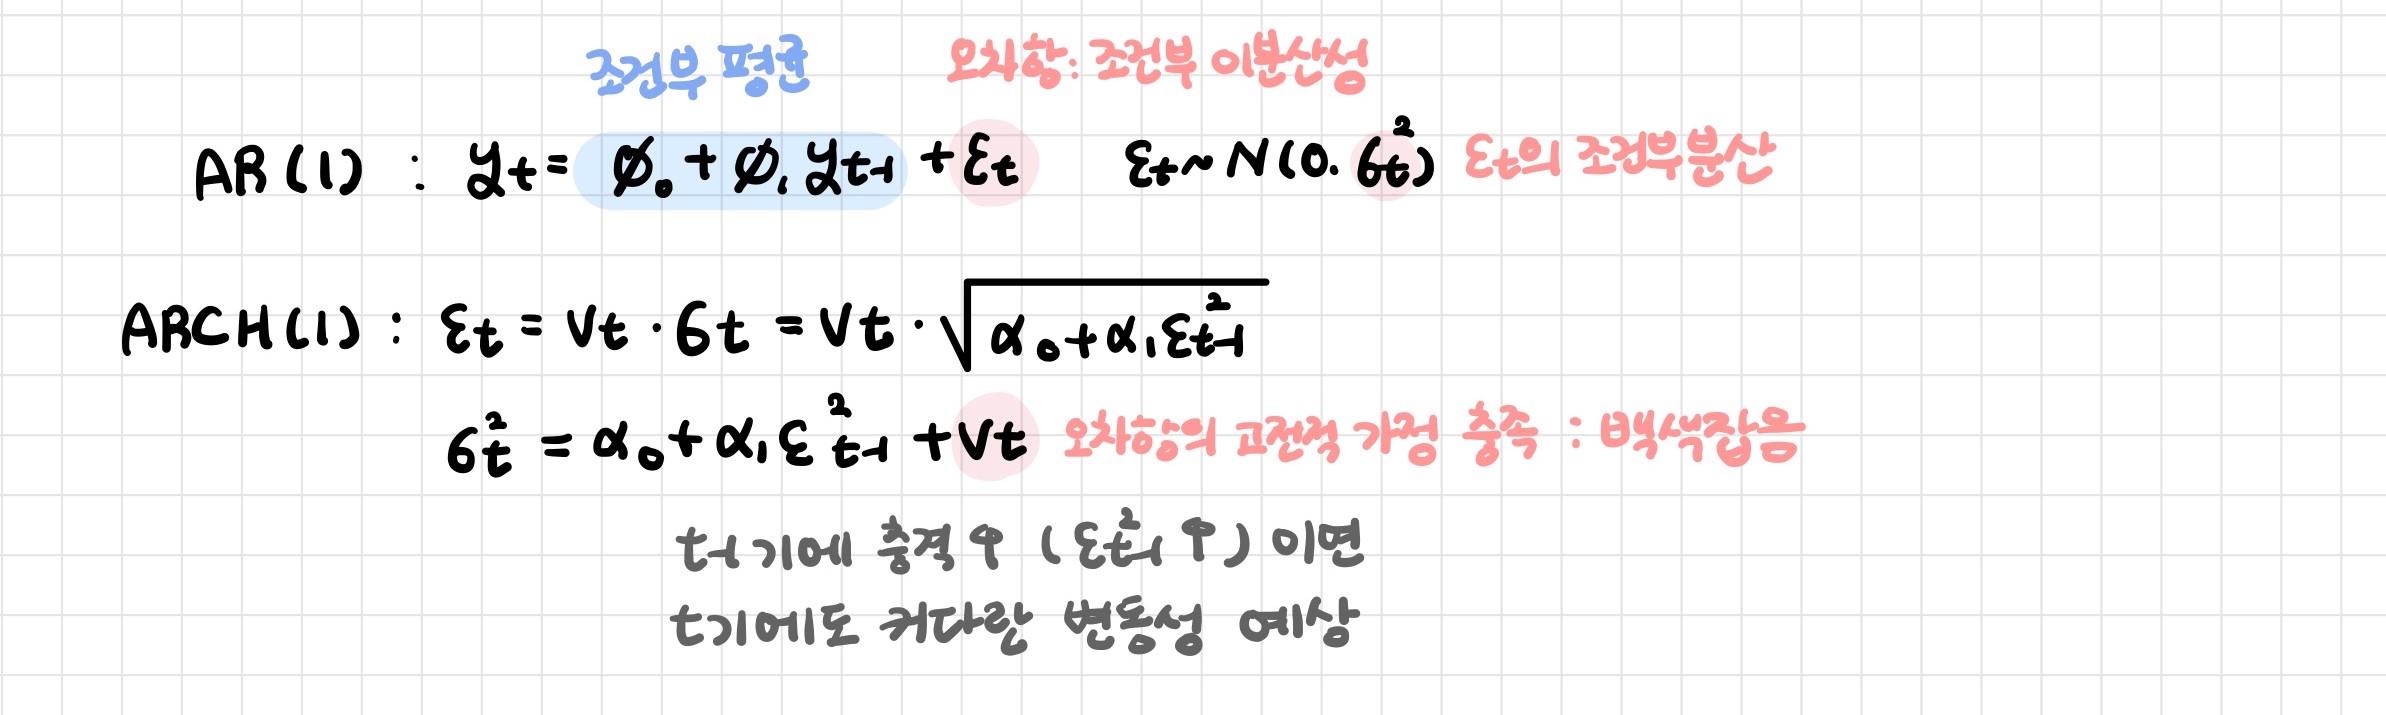 조건부 평균 오차항: 조건부 이분산성
AR(1) : yt = ∅₀ + ∅₁yt-1 + εt εt ~ N(0. 6t²) εt의 조건부분산
ARCH(1) : εt = Vt · 6t = Vt · √(α₀ + α₁εt-1²)
6t² = α₀ + α₁εt-1² + Vt 오차항의 고전적 가정 충족 : 백색잡음
t-1기에 충격↑ (εt-1² ↑) 이면
t기에도 커다란 변동성 예상